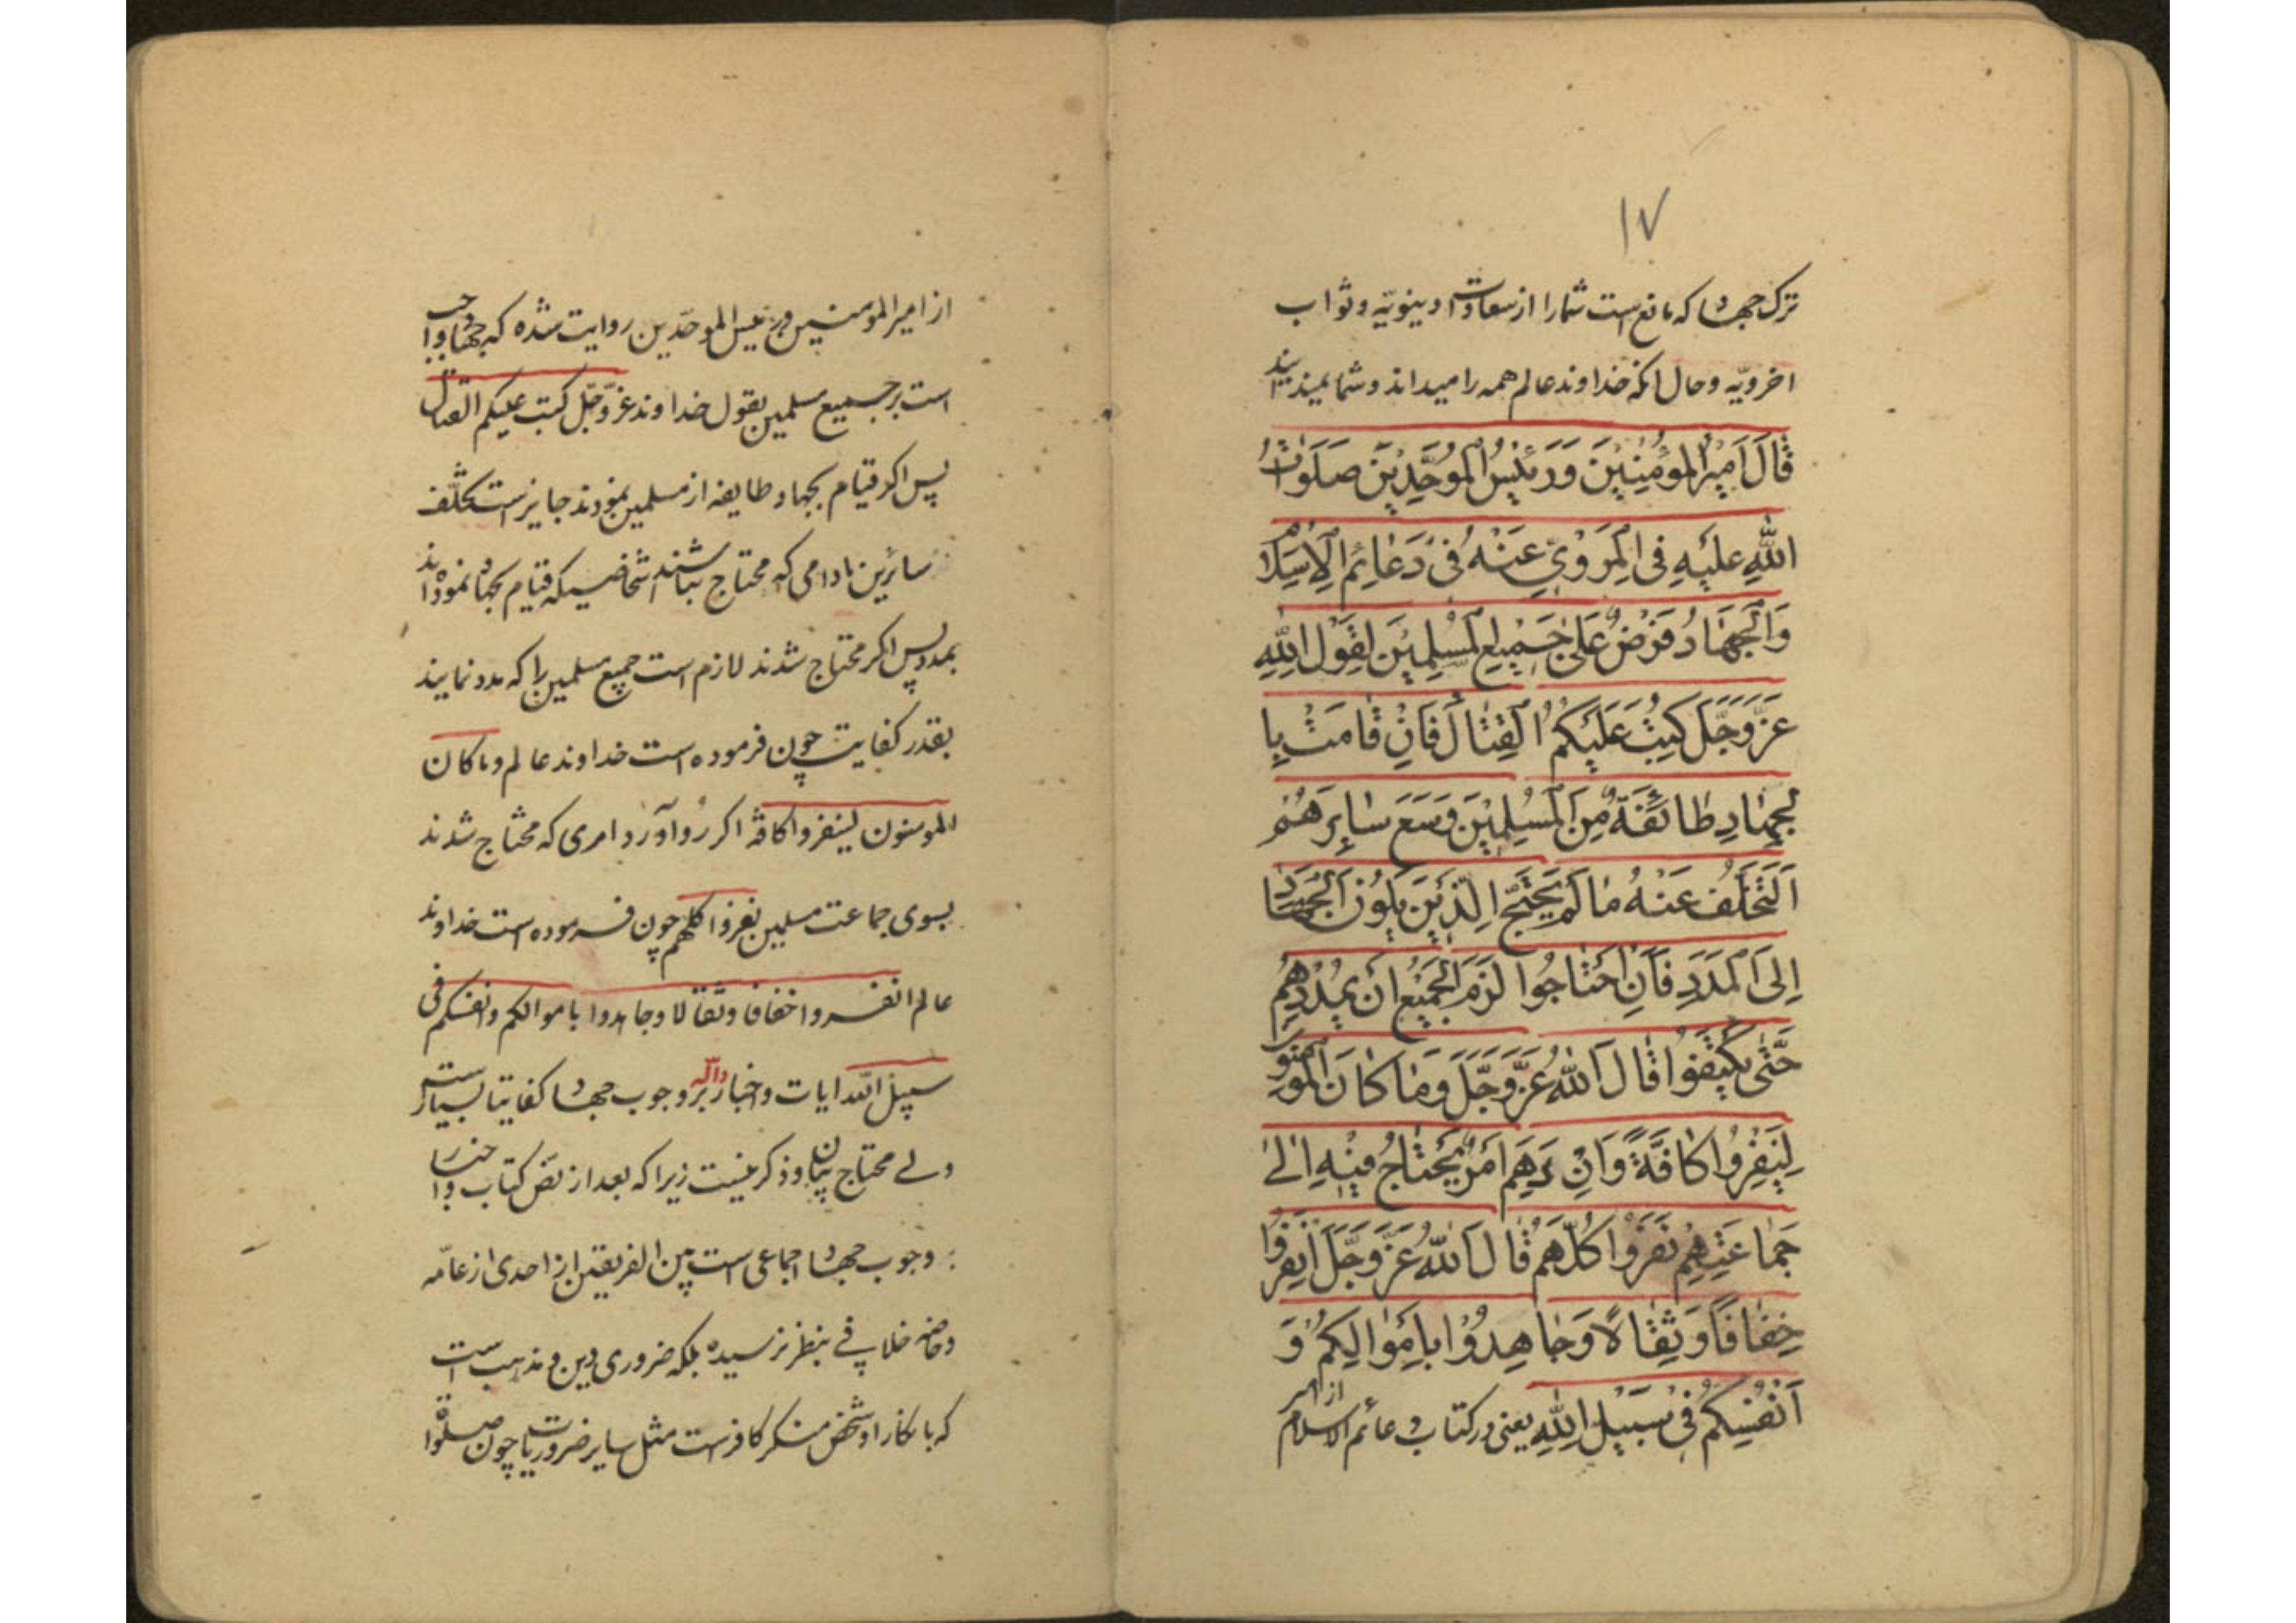 ١٧
ترک جهاد که مانع است شما را از سعادات دینویّه و ثواب
اخرویّه و حال انکه خداوند عالم همه را میداند و شما نمیدانید
قَالَ اَمِیرُ المُؤْمِنِینَ وَرَئیسُ المُوَحِّدِینَ صَلَوٰاتُ
اللّٰهِ عَلَیْهِ فِی المَرْوِیِّ عَنْهُ فی دَعٰائِمِ الْاِسْلٰامِ
وَالْجِهٰادُ فَرْضٌ عَلیٰ جَمِیعِ المُسْلِمِینَ لِقَوْلِ اللّٰهِ
عَزَّوَجَلَّ کُتِبَ عَلَیْکُمُ الْقِتٰالُ فَاِنْ قٰامَتْ بِا
لْجِهٰادِ طٰائِفَةٌ مِنَ المُسْلِمِینَ وَسَعَ سٰایِرَهُمُ
اَلتَّخَلُّفُ عَنْهُ مٰا لَمْ یَحْتَجِ الَّذِینَ یَلُونَ الْجِهٰادَ
اِلَی الْمَدَدِ فَاِنِ احْتٰاجُوا لَزِمَ الْجَمِیعَ اَنْ یُمِدُّوهُمْ
حَتّٰی یَکْتَفُوا قٰالَ اللّٰهُ عَزَّوَجَلَّ وَمٰا کٰانَ الْمُؤْمِنُونَ
لِیَنْفِرُوا کٰافَّةً وَاِنْ دَهِمَ اَمْرٌ یُحْتٰاجُ فِیهِ اِلیٰ
جَمٰاعَتِهِمْ نَفَرُوا کُلُّهُمْ قٰالَ اللّٰهُ عَزَّوَجَلَّ اِنْفِرُوا
خِفٰافًا وَثِقٰالًا وَجٰاهِدُوا بِاَمْوٰالِکُمْ وَ
اَنْفُسِکُمْ فی سَبِیلِ اللّٰهِ یعنی در کتاب دعائم الاسلام
از امیر المومنین و رئیس الموحّدین روایت شده که جهاد واجب
است بر جمیع مسلمین بقول خداوند عزّ وجّل کتب علیکم القتال
پس اکر قیام بجهاد طایفه از مسلمین نمودند جایز است تخلّف
سائرین مادامی که محتاج نباشند اشخاصیکه قیام بجهاد نموده‌اند
بمدد پس اکر محتاج شدند لازم است جمیع مسلمین را که مدد نمایند
بقدر کفایت چون فرموده است خداوند عالم وماکان
المومنون لینفروا کافّة اکر رُو آورد امری که محتاج شدند
بسوی جماعت مسلمین نفروا کلهم چون فرموده است خداوند
عالم انفروا خفافا وثقالا وجاهدوا باموالکم وانفسکم فی
سبیل اللّه ایات و اخبار دالّه بر وجوب جهاد کفایتا بسیار است
ولے محتاج ببیان و ذکر نیست زیرا که بعد از نصّ کتاب و اخبار
وجوب جهاد اجماعی است بین الفریقین از احدی از عامّه
وخاصه خلافے بنظر نرسیده بلکه ضروری دین و مذهب است
که بانکار او شخص منکر کافر است مثل سایر ضروریات چون صلوة